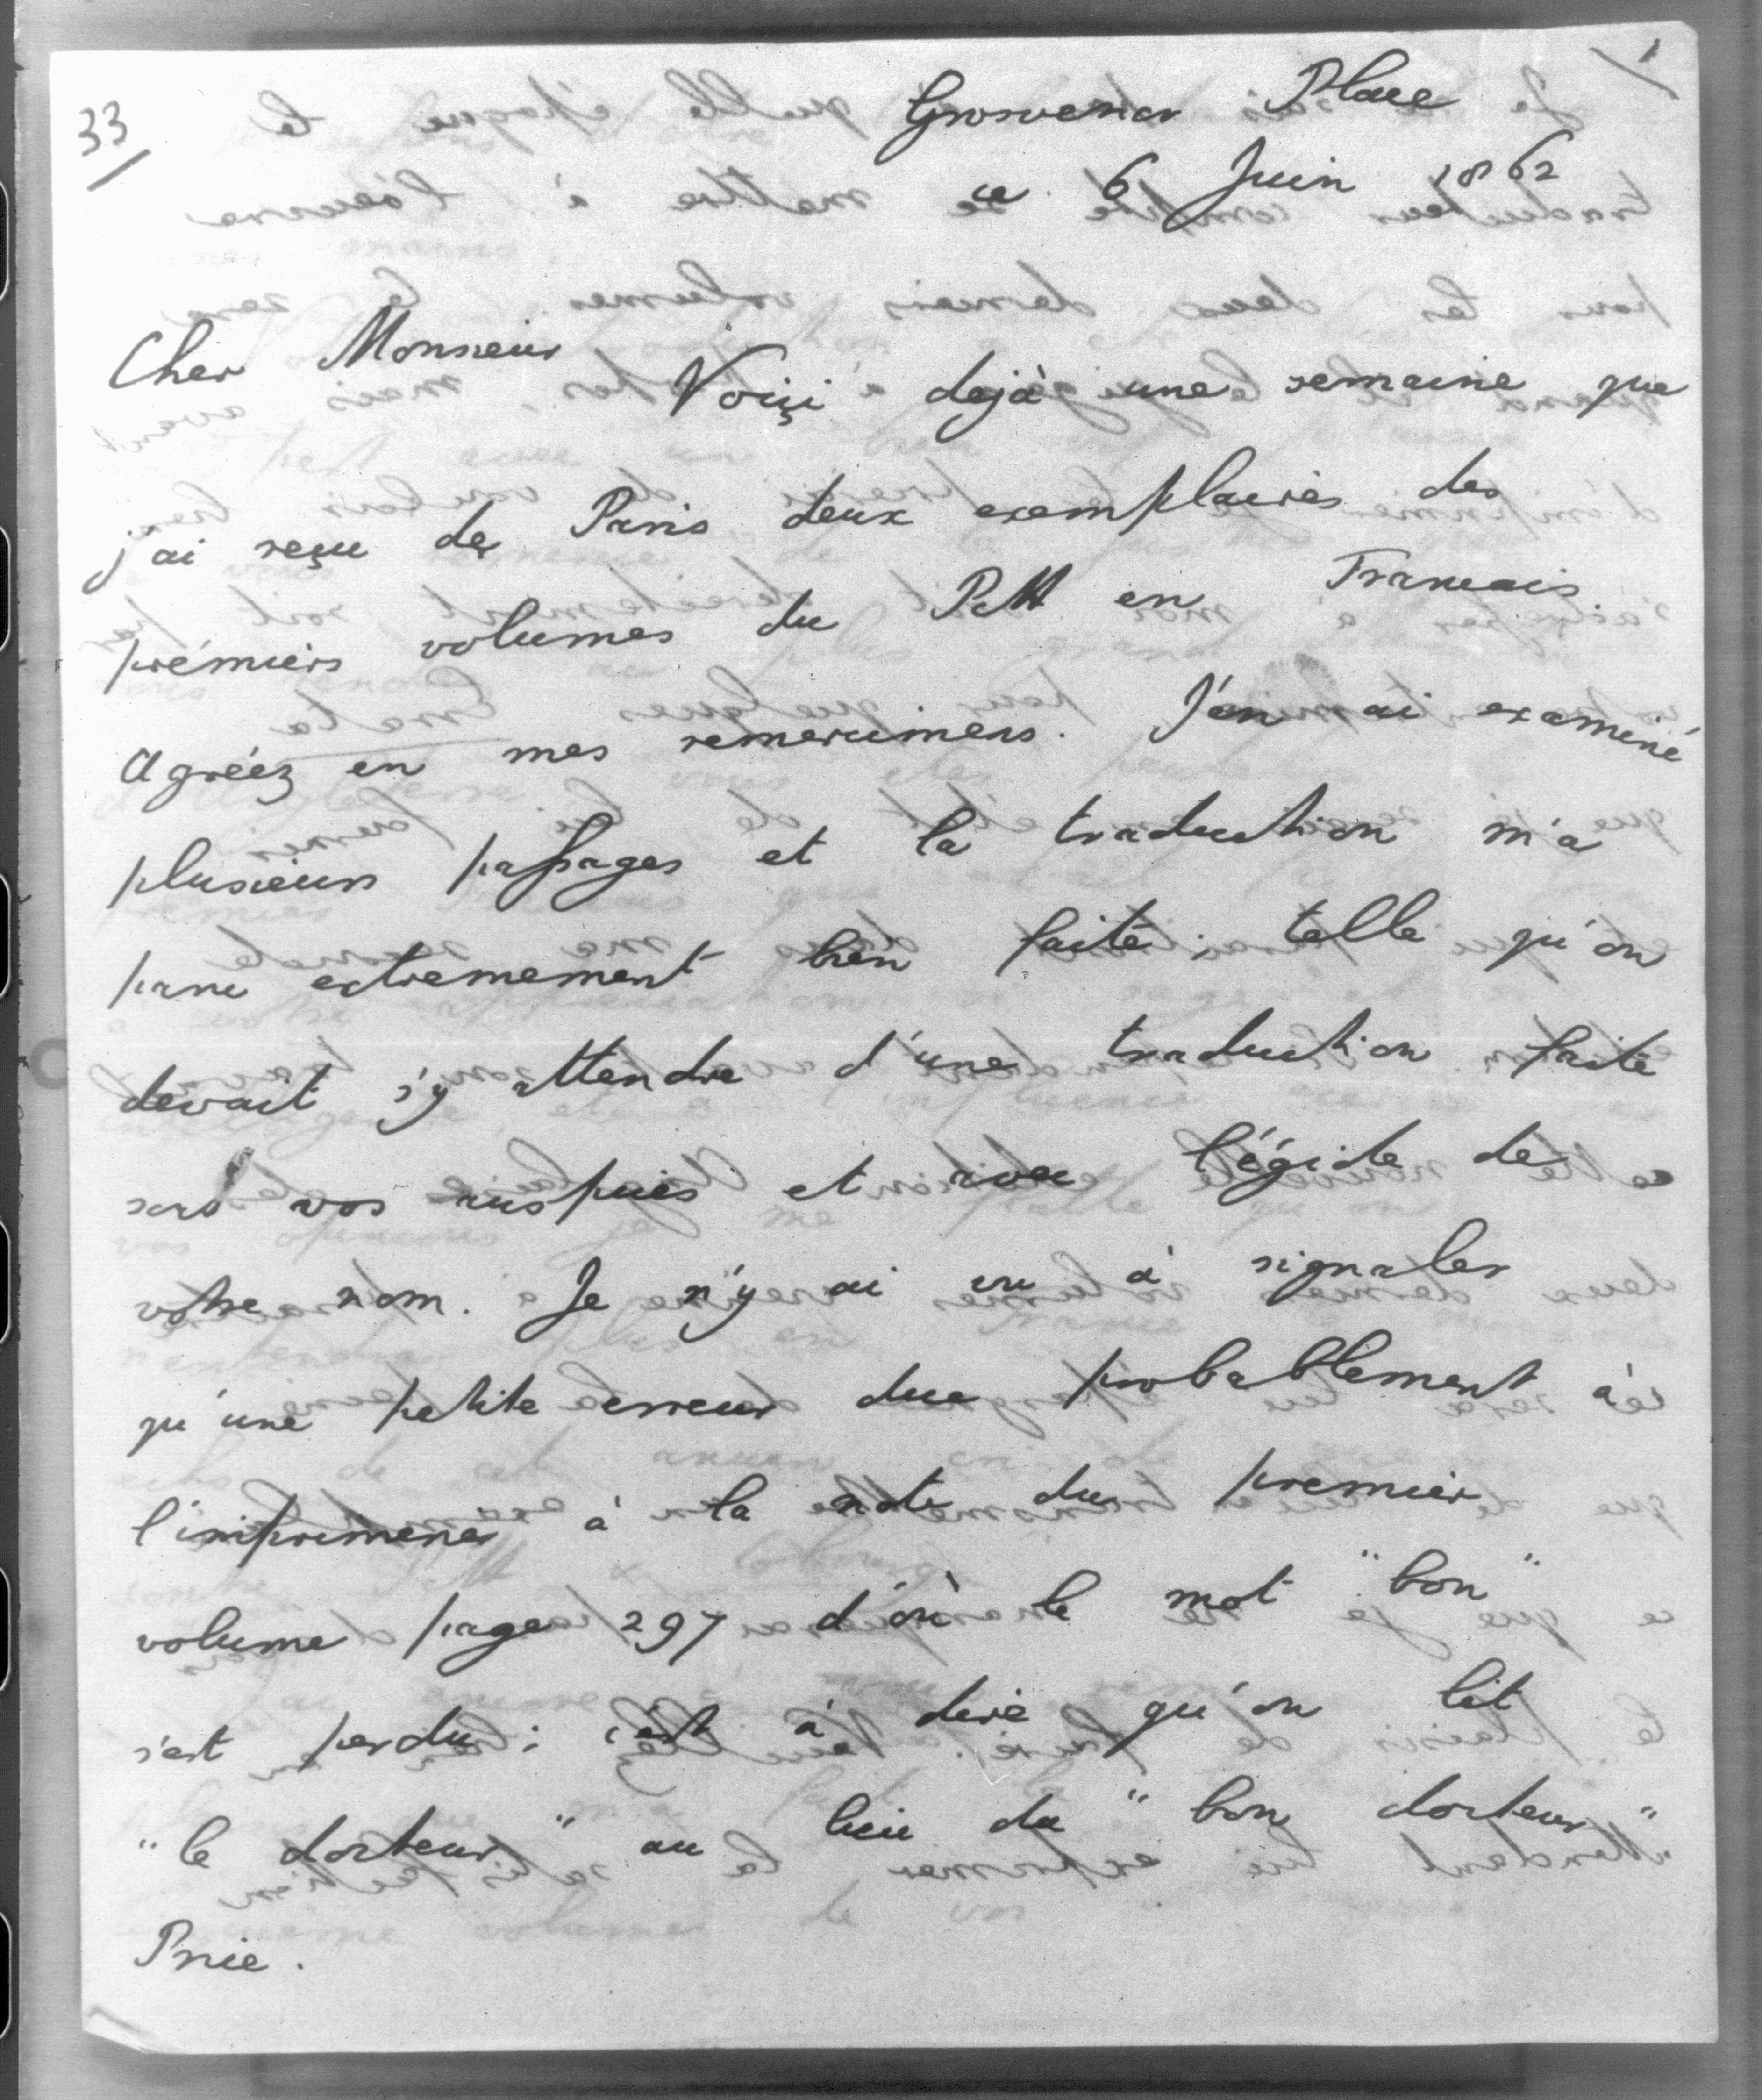 33
1
Grosvenor Place
ce 6 Juin 1862
Cher Monsieur
Voiçi dejà une semaine que
j'ai reçu de Paris deux exemplaires des
prémiers volumes du Pitt en Francais.
Agréez en mes remercimens. J'en ai examiné
plusieurs passages et la traduction m'a
paru extremement bien faite; telle qu'on
devait s'y attendre d'une traduction faite
sous vos auspices et avec l'égide de
votre nom. Je n'y ai vu à signaler
qu'une petite erreur due probablement à
l'imprimerie à la note du premier
volume page 297 d'où le mot "bon"
s'est perdu; c'est à dire qu'on lit
"le docteur" au lieu du "bon docteur"
Price.